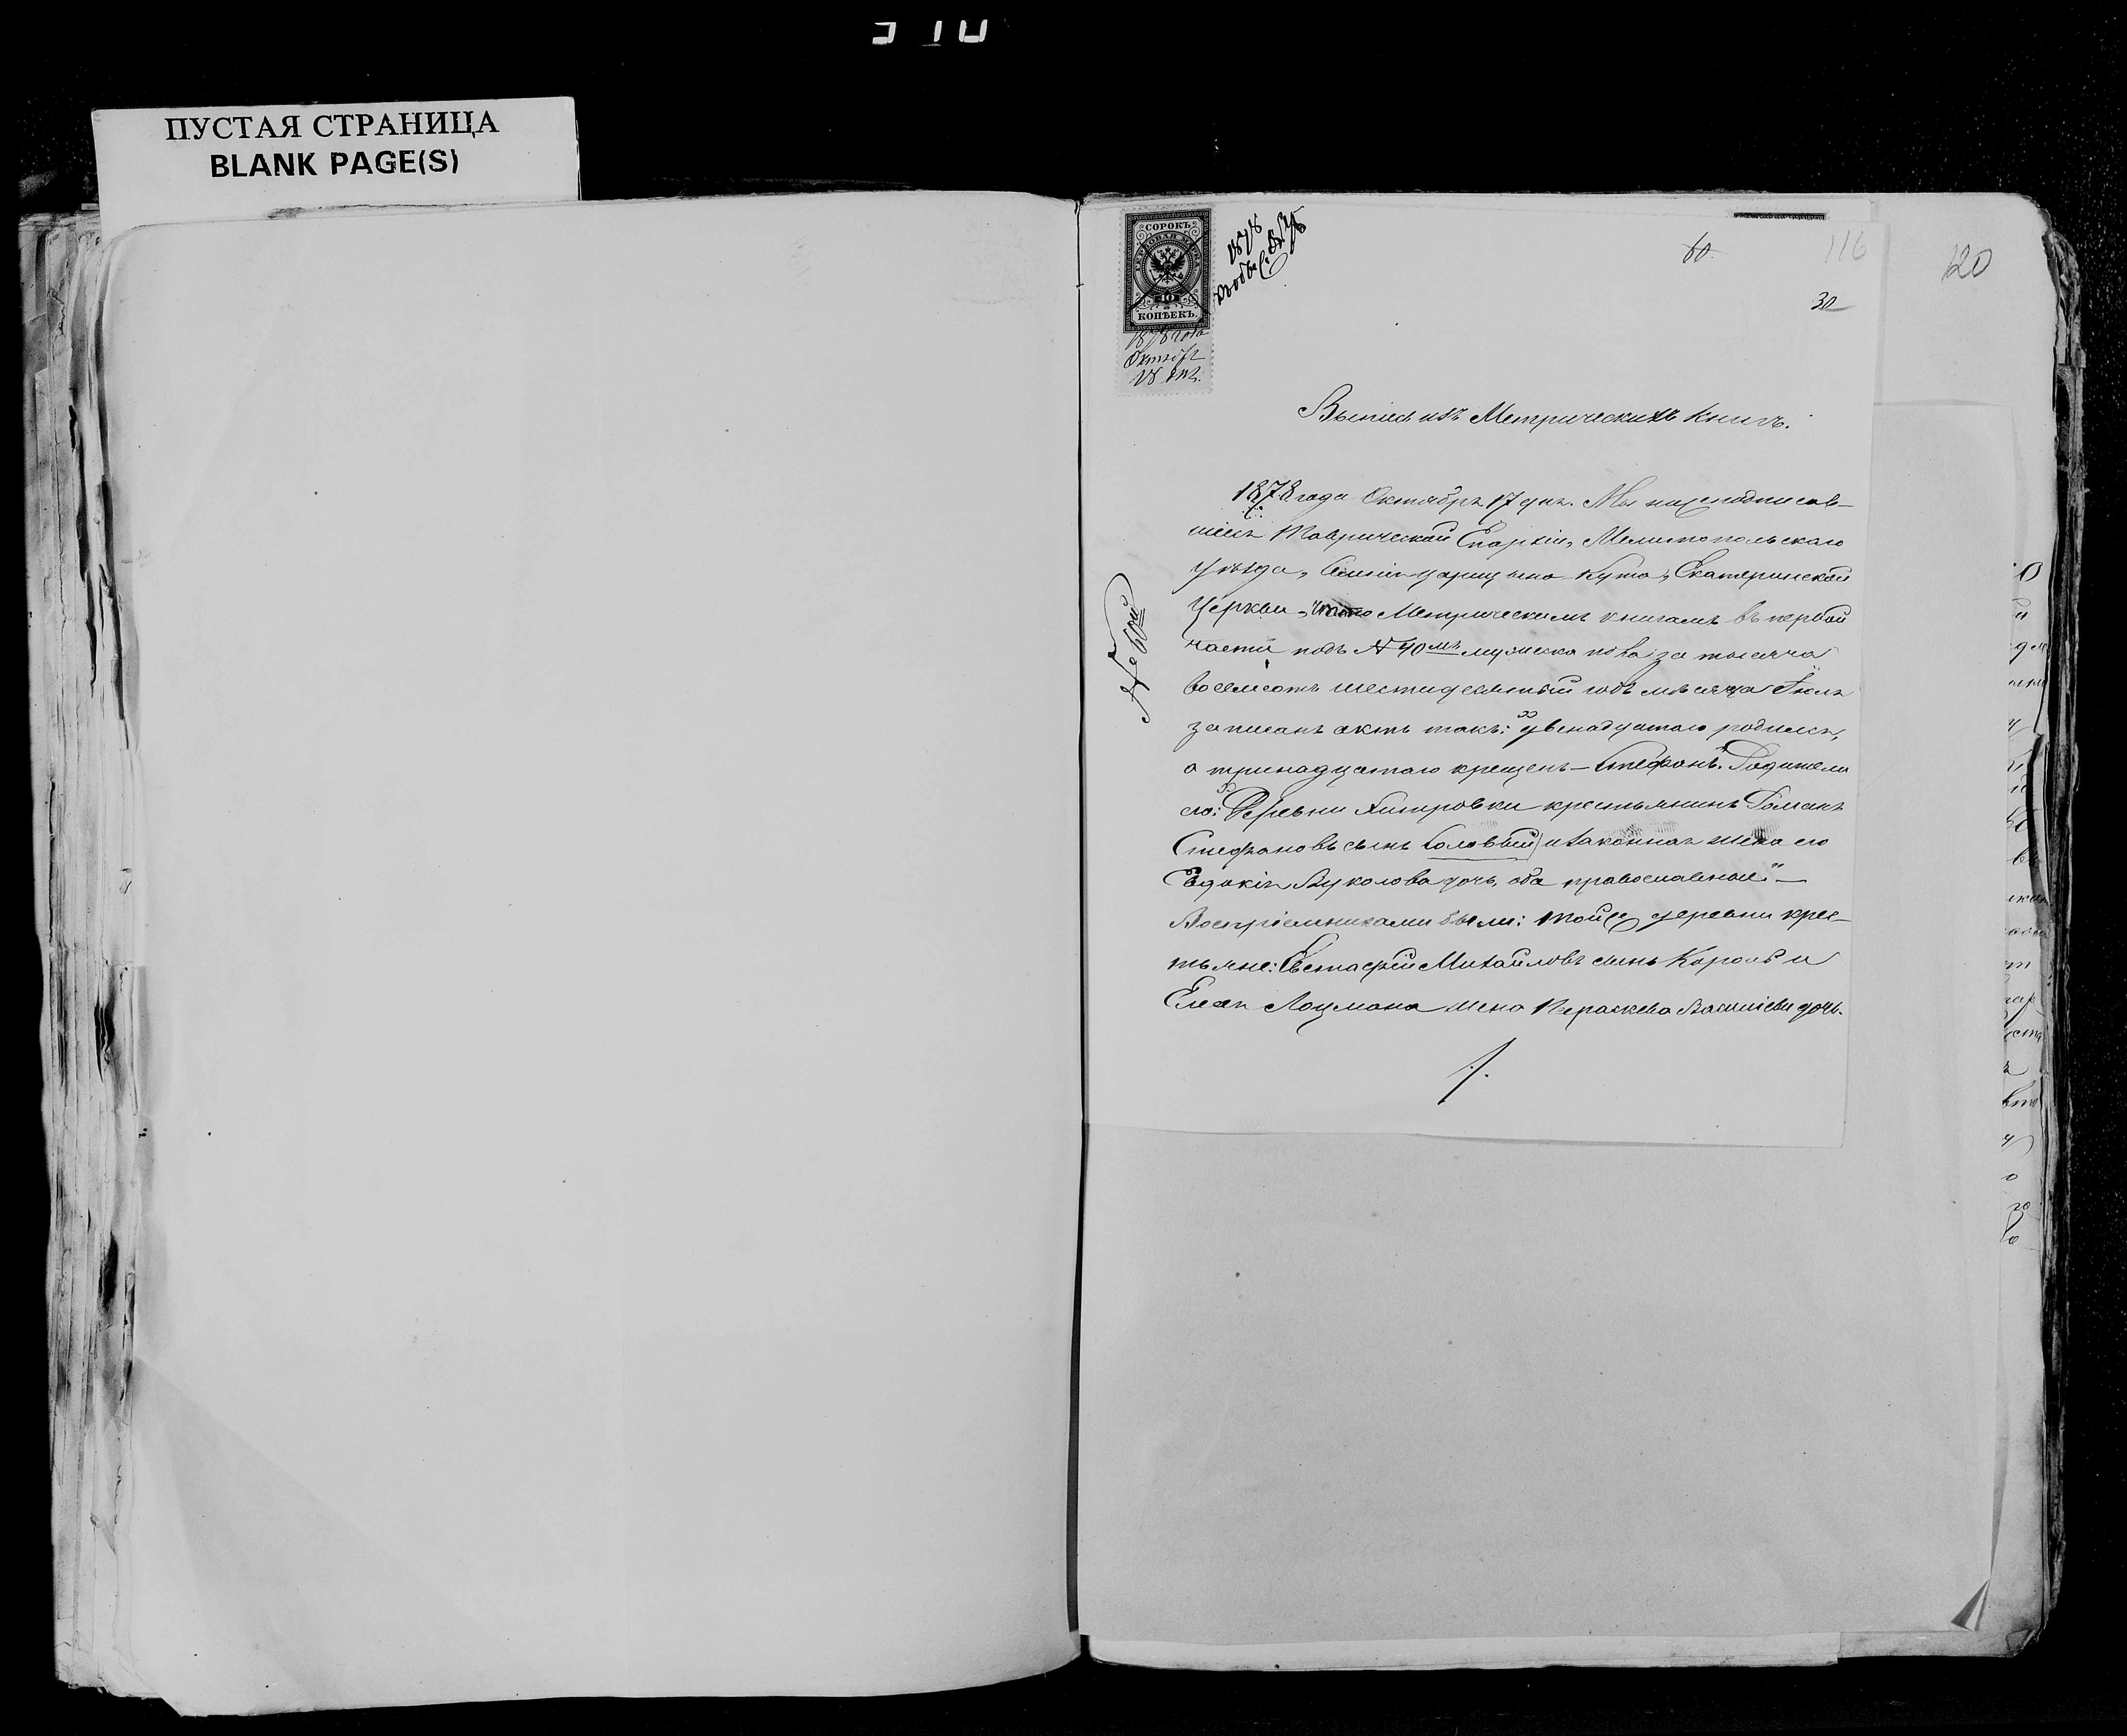 ПУСТАЯ СТРАНИЦА
BLANK PAGE(S)
СОРОКЪ
ГЕРБОВАЯ МАРКА
40
КОПѢЕКЪ.
1878 года
Октябр
18 дня.
1878
60.
116
120
30
Выпись изъ Метрическихъ Книгъ.
№ 60й
1878 года Октября 17 дня. Мы нижеподписав-
шіеся Таврической Епархіи, Мелитопольскаго
уѣзда, Селенія Царицыно-Кута, Екатерининской
Церкви, что по Метрическимъ книгамъ въ первой
части подъ № 40мъ мужеска пола за тысяча
восемьсотъ шестидесятый годъ мѣсяца Іюля
записанъ актъ такъ: „двенадцатаго родился,
а тринадцатаго крещенъ – Стефанъ". Родители
его: „Деревни крестьянинъ Романъ
Стефановъ сынъ Соловый и законная жена его
Евдокія Вуколова дочь, оба православные". –
Воспріемниками были: тойже деревни крес-
тьяне: Евстафій Михайловъ сынъ Король и
Лоцмана жена Параскева Васильева дочь.